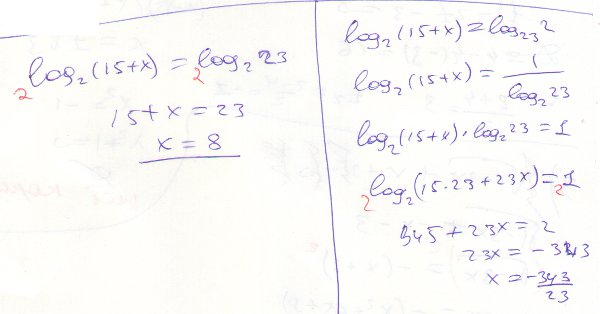 2^log₂(15+x) = 2^log₂ 23
15 + x = 23
x = 8
log₂(15+x) = log₂₃ 2
log₂(15+x) = 1/log₂ 23
log₂(15+x) · log₂ 23 = 1
2^log₂(15·23 + 23x) = 2^1
345 + 23x = 2
23x = -343
x = -343/23